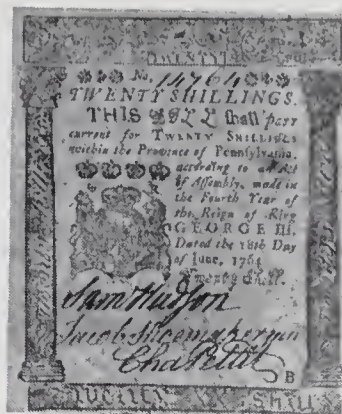 TWENTY
No. 14764
TWENTY SHILLINGS.
THIS BILL shall pass
current for TWENTY SHILLINGS
within the Province of Pennsylvania,
according to an Act
of Assembly, made in
the Fourth Year of
the Reign of King
GEORGE III.
Dated the 18th Day
of June, 1764
Twenty Shill.
Sam Hudson
Jacob Shoemaker jun
Cha Pettit
B
TWENTY SHILL